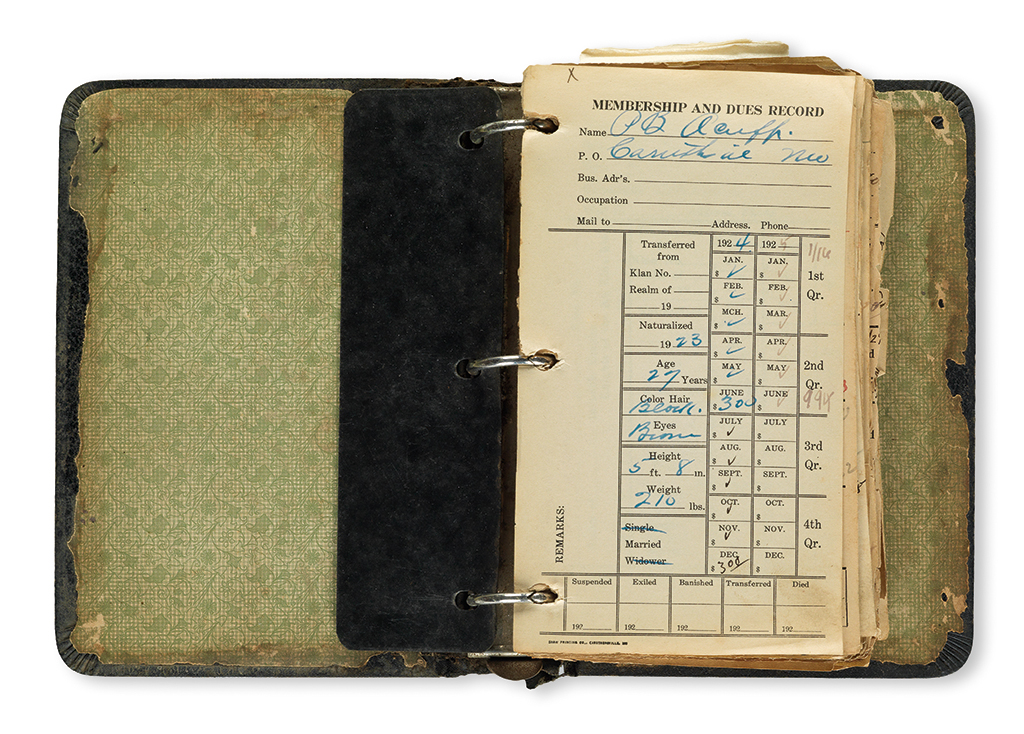 x
MEMBERSHIP AND DUES RECORD
Name P B Acuff.
P. O. Caruthville Mo
Bus. Adr's.
Occupation
Mail to Address. Phone
Transferred from
Klan No.
Realm of
19
Naturalized
1923
Age
27 Years
Color Hair
Black.
Eyes
Brown
Height
5 ft. 8 in.
Weight
210 lbs.
Single
Married
Widower
REMARKS:
1924 1925
JAN. JAN.
$ ✓ $ ✓
FEB. FEB.
$ ✓ $ ✓
MCH. MAR.
$ ✓ $ ✓
APR. APR.
$ ✓ $ ✓
MAY MAY
$ ✓ $ ✓
JUNE JUNE
$ 300 $ ✓
JULY JULY
$ ✓ $
AUG. AUG.
$ ✓ $
SEPT. SEPT.
$ ✓ $
OCT. OCT.
$ ✓ $
NOV. NOV.
$ ✓ $
DEC. DEC.
$ 300 $
1/16
1st
Qr.
2nd
Qr.
3rd
Qr.
4th
Qr.
Suspended Exiled Banished Transferred Died
192 192 192 192 192
PRINTING CO., CARUTHERSVILLE, MO